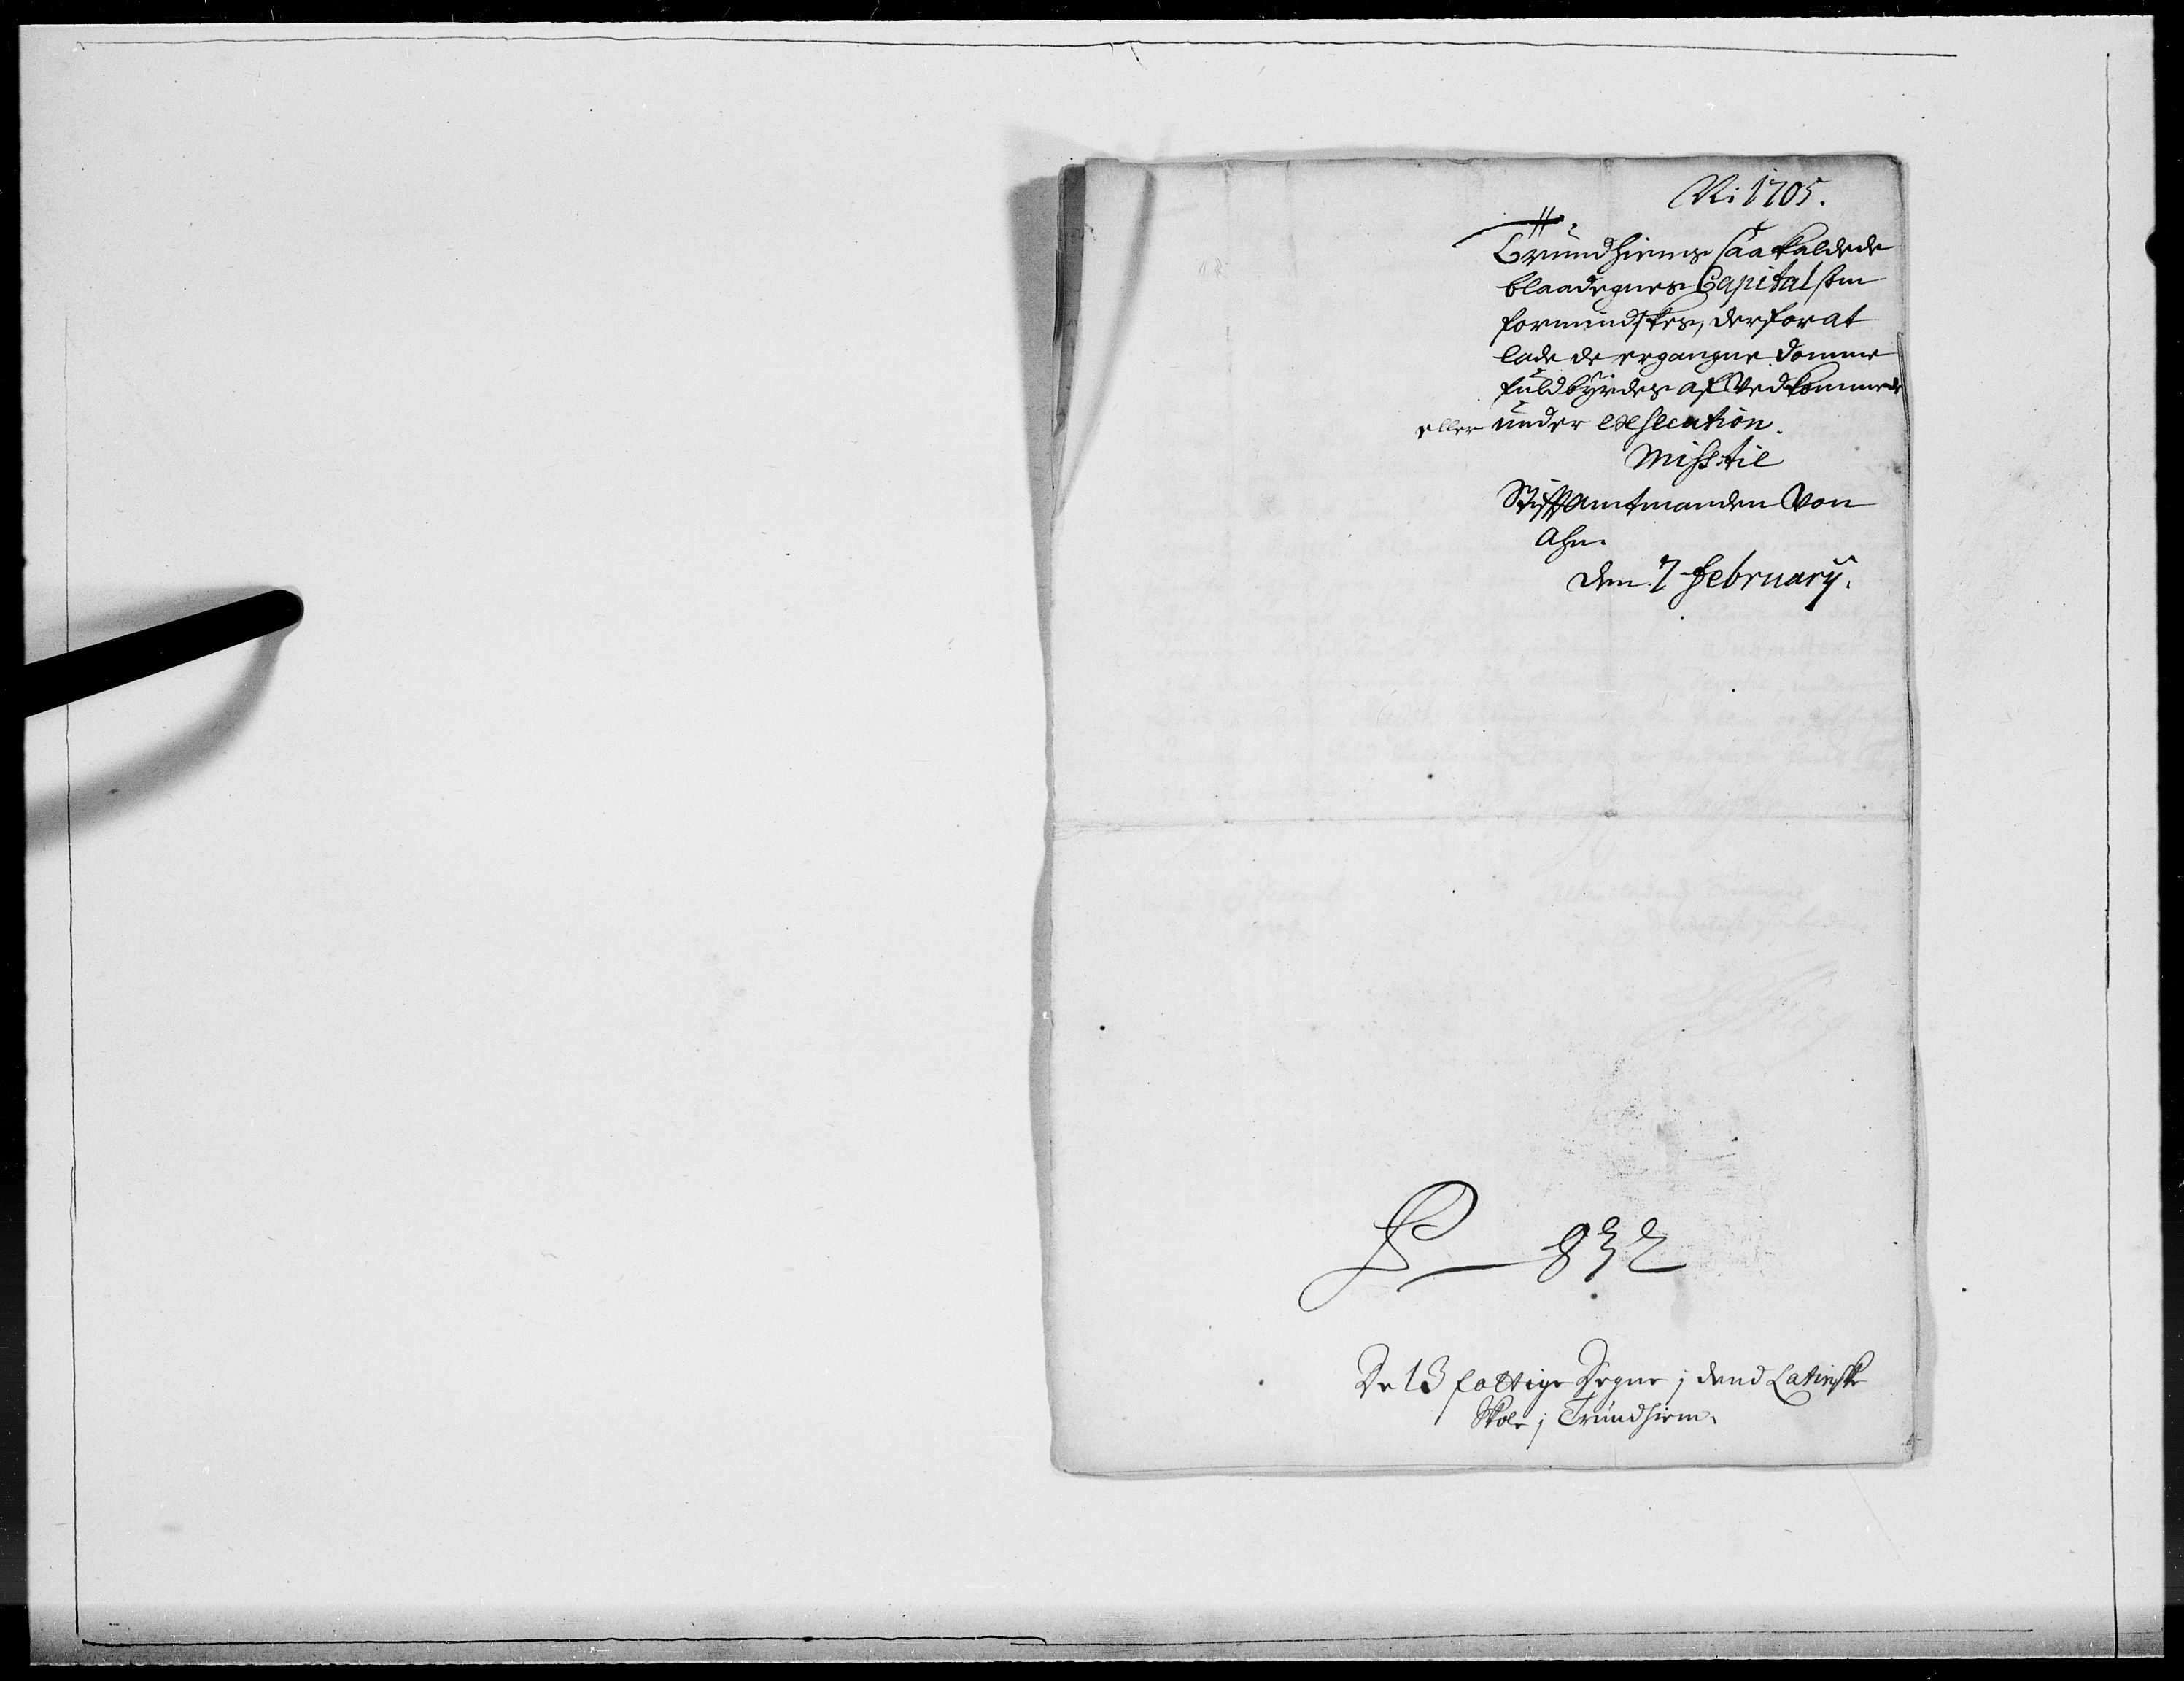 Ni 1705.
Trundhiems saa kaldede
blaadegnes Capital som
formindskes, derfor at
lade de ergangne Domme
fuldbyrdes af Vedkommende
eller under execution.
Miss: til
Stiftamtmanden Von
Ahn.
den 7 february.
P 832
De 13 fattige Degne i dend Latinske
Skole i Trundhiem.